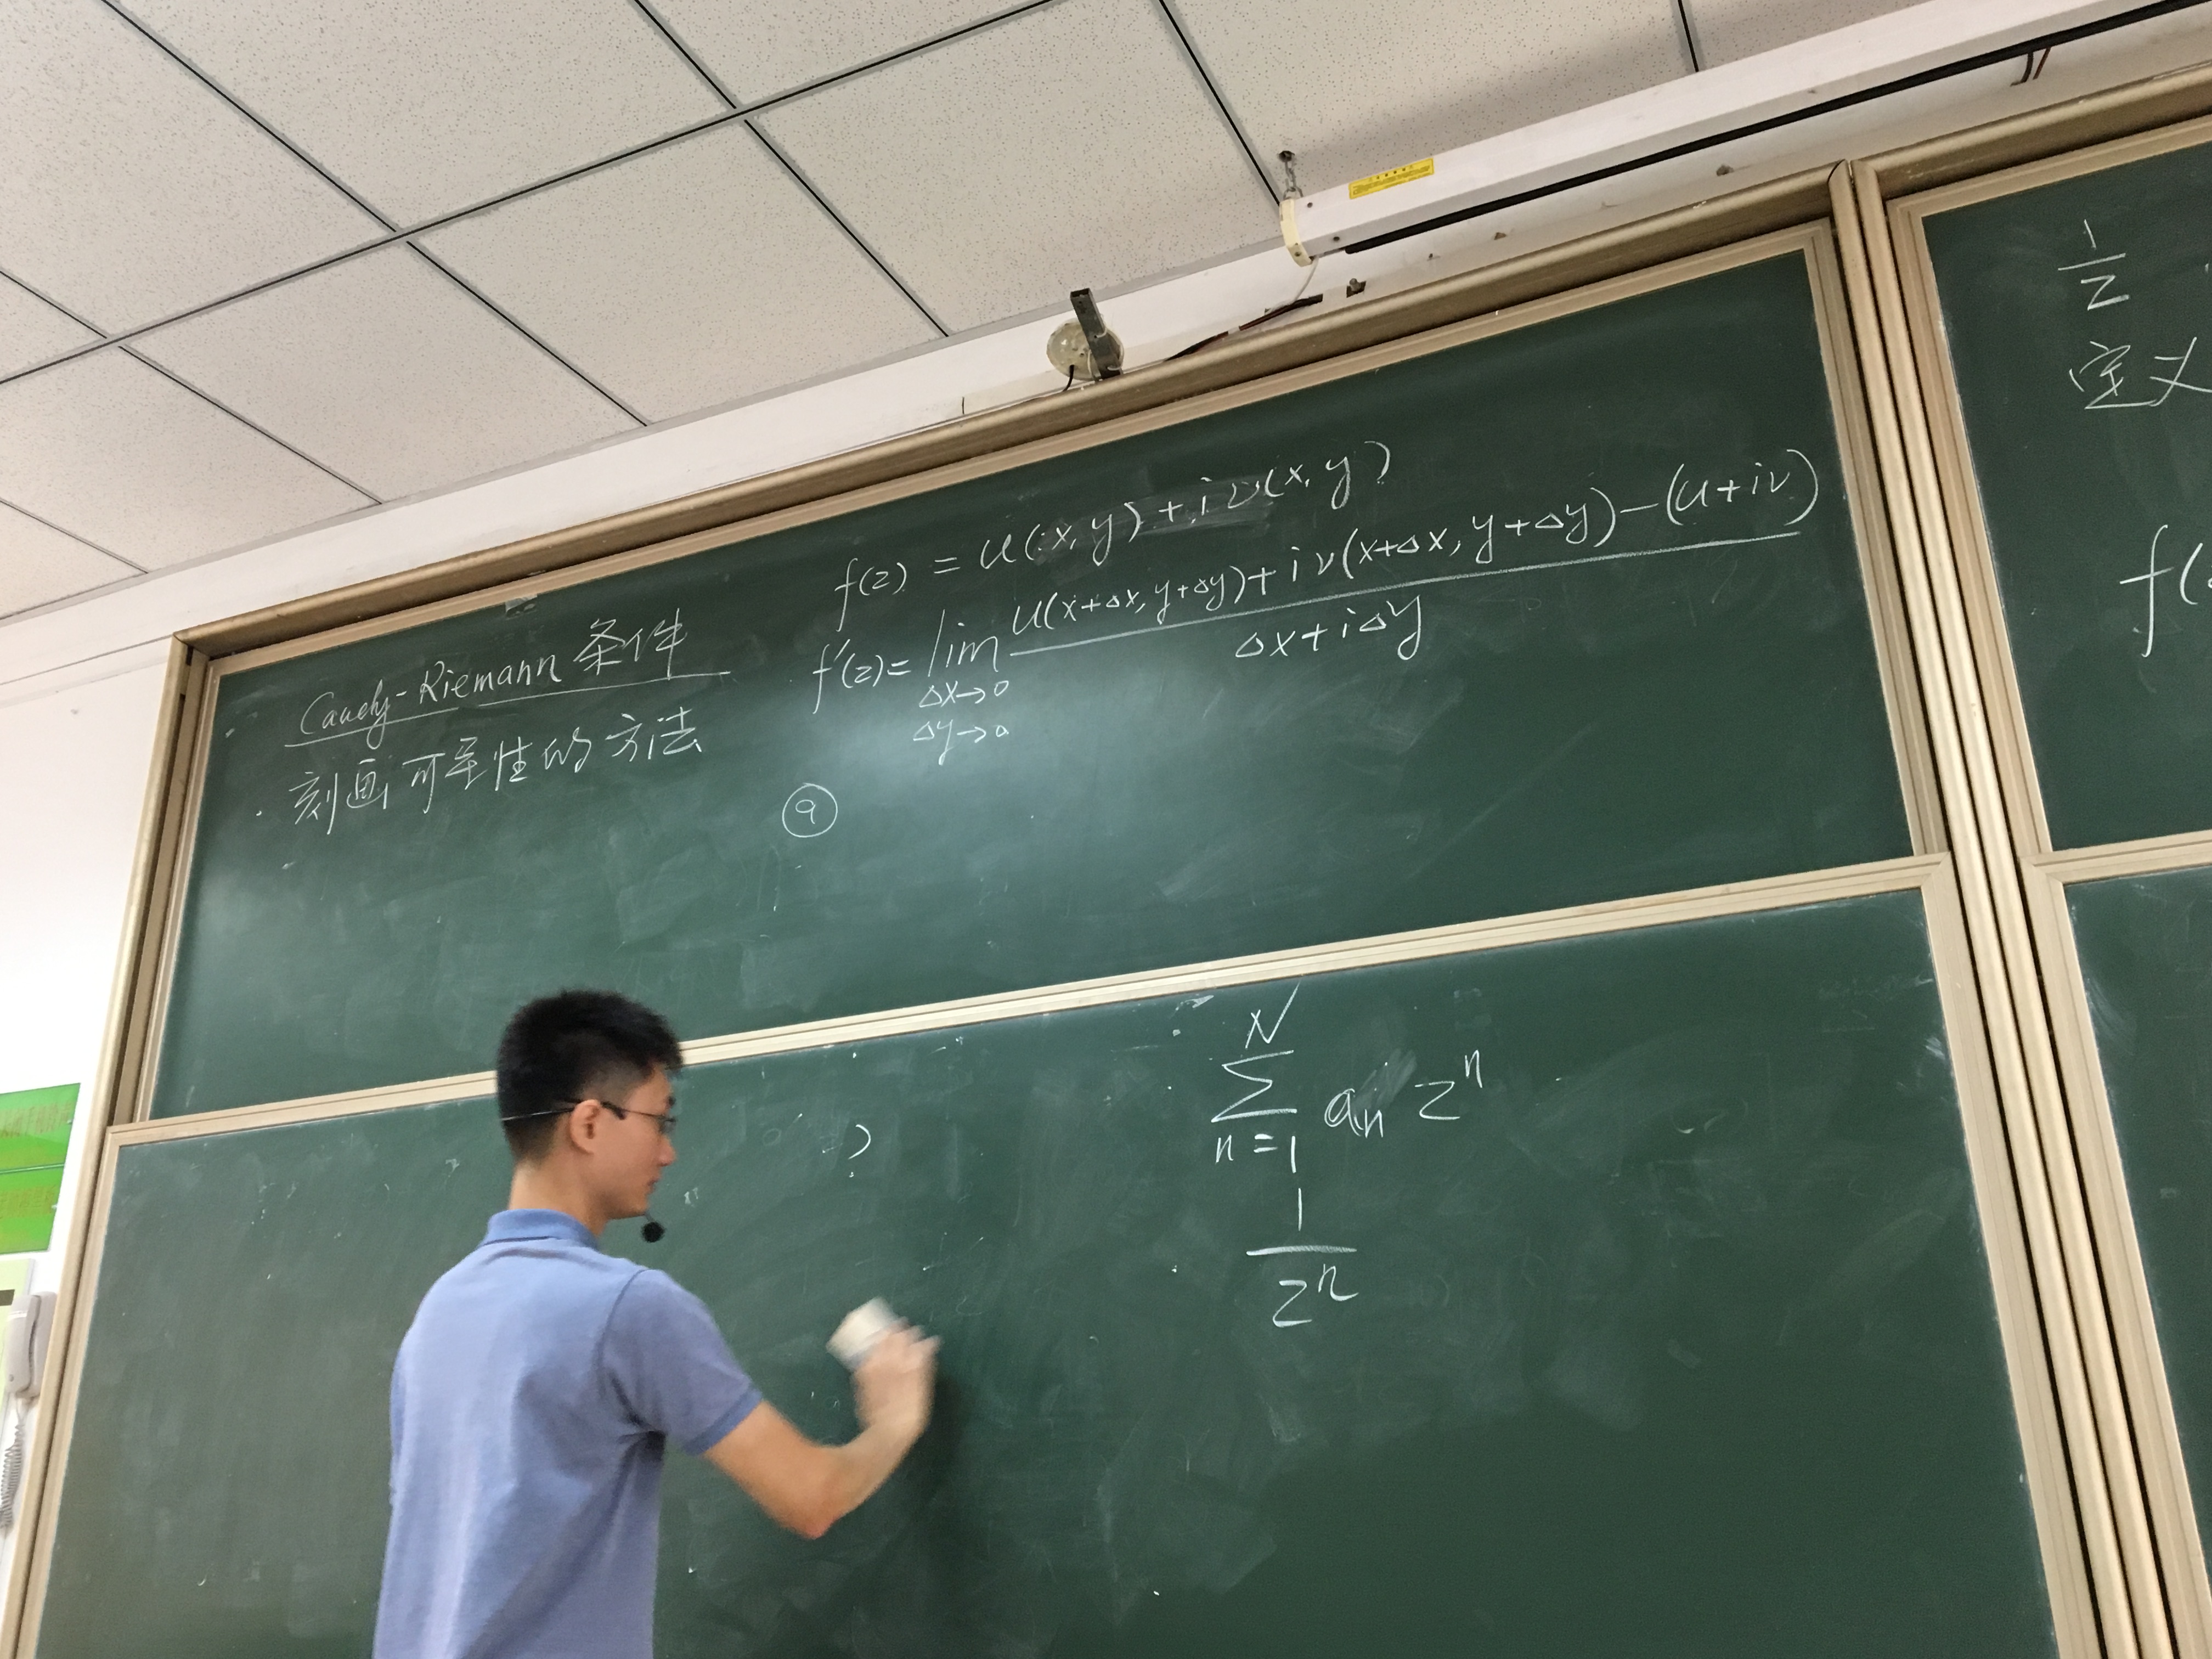 Cauchy-Riemann 条件
刻画可导性的方法
f(z) = u(x,y) + i v(x,y)
f'(z) = lim u(x+Δx, y+Δy) + i v(x+Δx, y+Δy) - (u+iv)
Δx + iΔy
Δx→0
Δy→0
⑨
?
N
∑ aₙ zⁿ
n=1
1
zⁿ
1
z
定义
f(